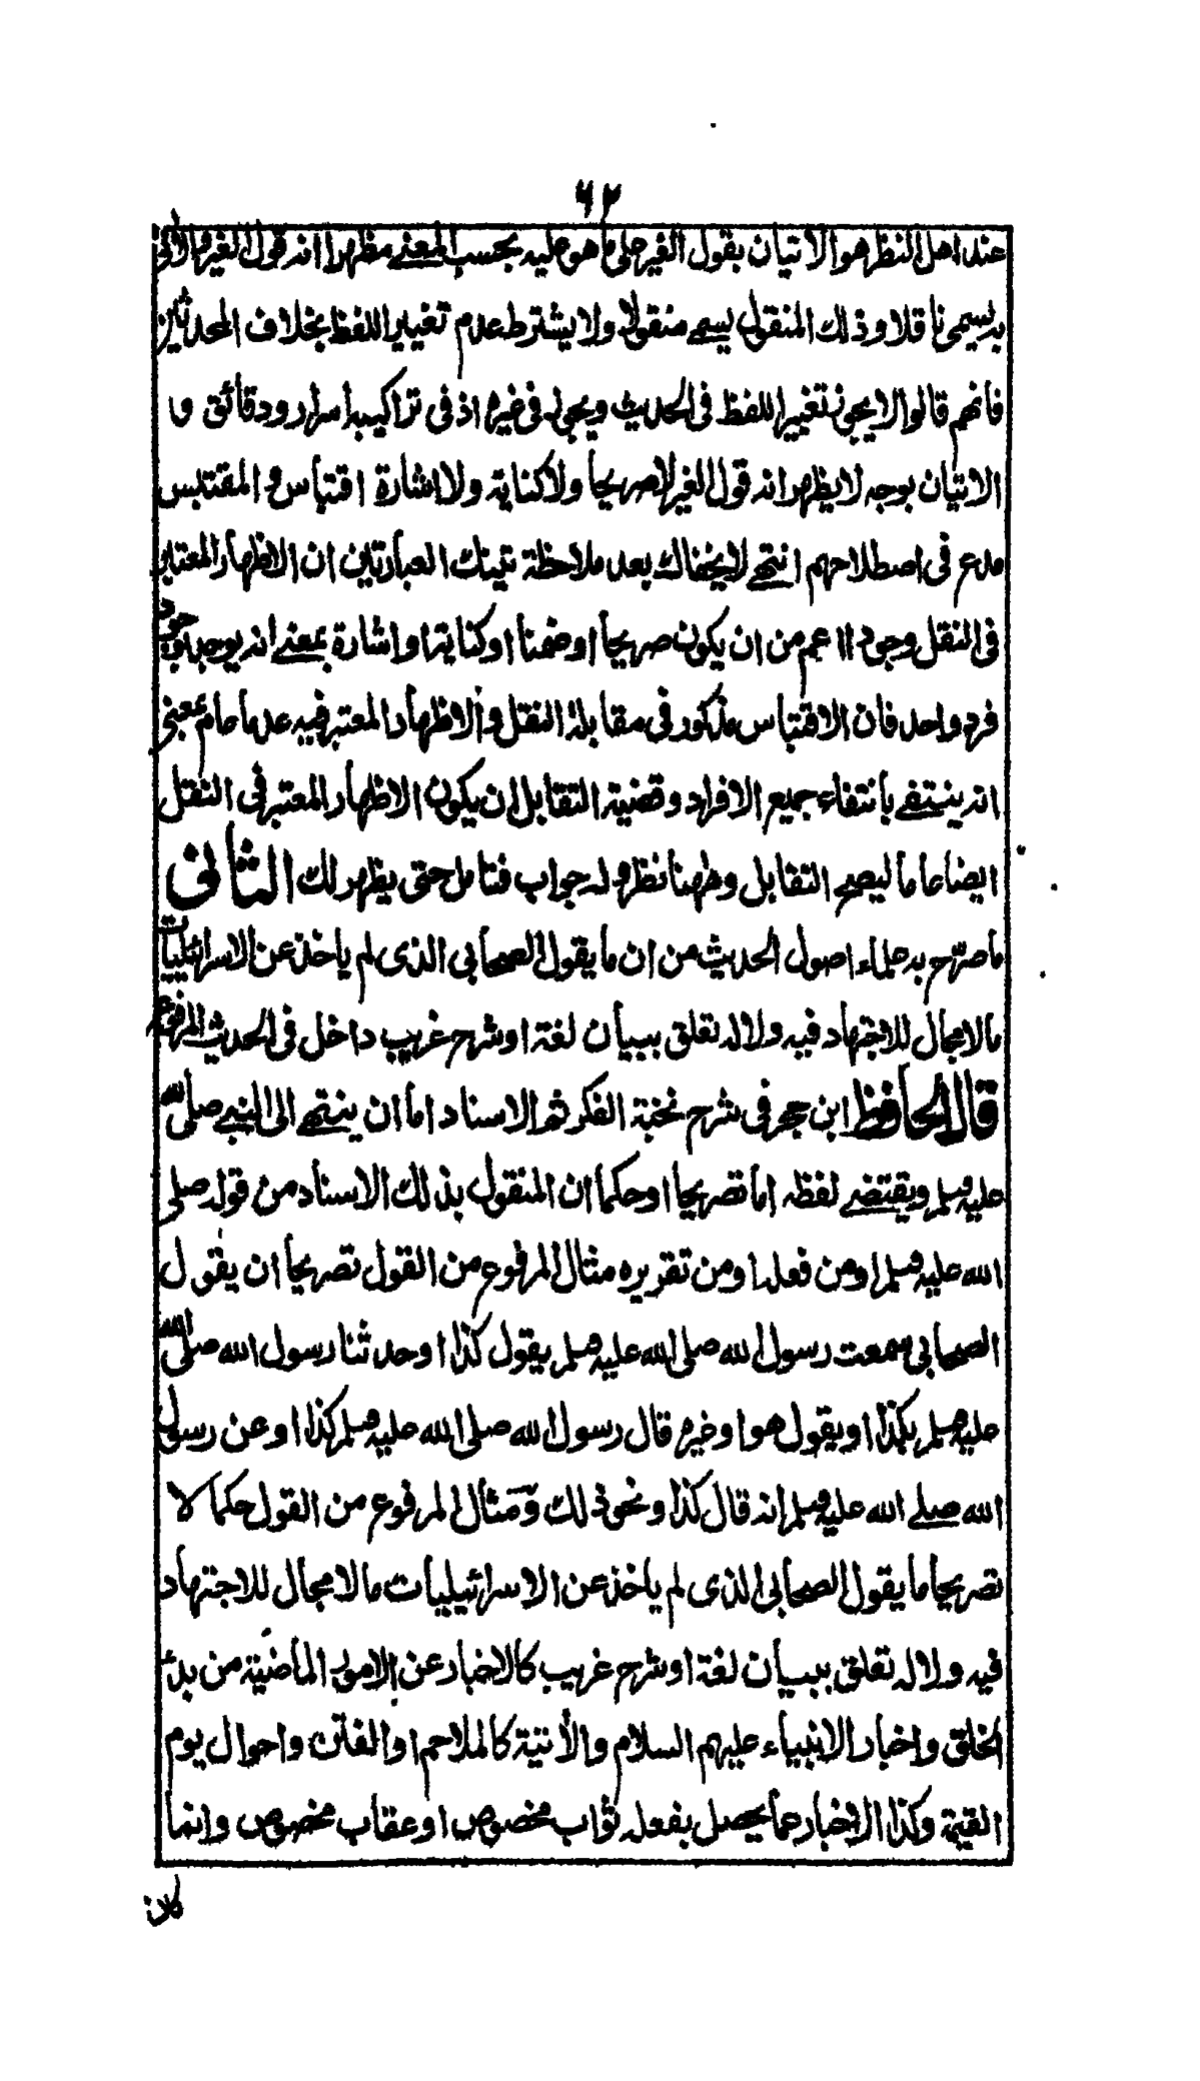 ٦٢
عند اهل النظر هو الاتيان بقول الغير على ما هو عليه بحسب المعنى مظهرا انه قول الغير والآتى
به يسمى ناقلا وذلك المنقول يسمى منقولا ولا يشترط عدم تغيير اللفظ بخلاف المحدثين
فانهم قالوا لا يجوز تغيير اللفظ فى الحديث ويجوز فى غيره اذ فى تراكيبه اسرار ودقائق و
الاتيان بوجه لا يظهر انه قول الغير لا صريحا ولا كناية ولا اشارة اقتباس و المقتبس
مدع فى اصطلاحهم انتهى لا يخفاك بعد ملاحظة تينك العبارتين ان الاظهار المعتبر
فى النقل وجودا اعم من ان يكون صريحا او ضمنا او كناية او اشارة بمعنى انه يوجد بوجود
فرد واحد فان الاقتباس مذكور فى مقابلة النقل والاظهار المعتبر فيه عدما عام بمعنى
انه ينتفى بانتفاء جميع الافراد وقضية التقابل ان يكون الاظهار المعتبر فى النقل
ايضا عاما ليصح التقابل وههنا نظر وله جواب فتامل حتى يظهر لك الثانى
ما صرّح به علماء اصول الحديث من ان ما يقول الصحابى الذى لم ياخذ عن الاسرائيليات
ما لا مجال للاجتهاد فيه ولا له تعلق ببيان لغة او شرح غريب داخل فى الحديث المرفوع
قال الحافظ ابن حجر فى شرح نخبة الفكر ثم الاسناد اما ان ينتهى الى النبى صلى الله
عليه وسلم ويقتضى لفظه اما تصريحا او حكما ان المنقول بذلك الاسناد من قوله صلى
الله عليه وسلم او من فعله او من تقريره مثال المرفوع من القول تصريحا ان يقول
الصحابى سمعت رسول الله صلى الله عليه وسلم يقول كذا او حدثنا رسول الله صلى الله
عليه وسلم بكذا او يقول هو او غيره قال رسول الله صلى الله عليه وسلم كذا او عن رسول
الله صلى الله عليه وسلم انه قال كذا ونحو ذلك ومثال المرفوع من القول حكما لا
تصريحا ما يقول الصحابى الذى لم ياخذ عن الاسرائيليات ما لا مجال للاجتهاد
فيه ولا له تعلق ببيان لغة او شرح غريب كالاخبار عن الامور الماضية من بدء
الخلق واخبار الانبياء عليهم السلام والآتية كالملاحم والفتن واحوال يوم
القيمة وكذا الاخبار عما يحصل بفعله ثواب مخصوص او عقاب مخصوص وانما
كان